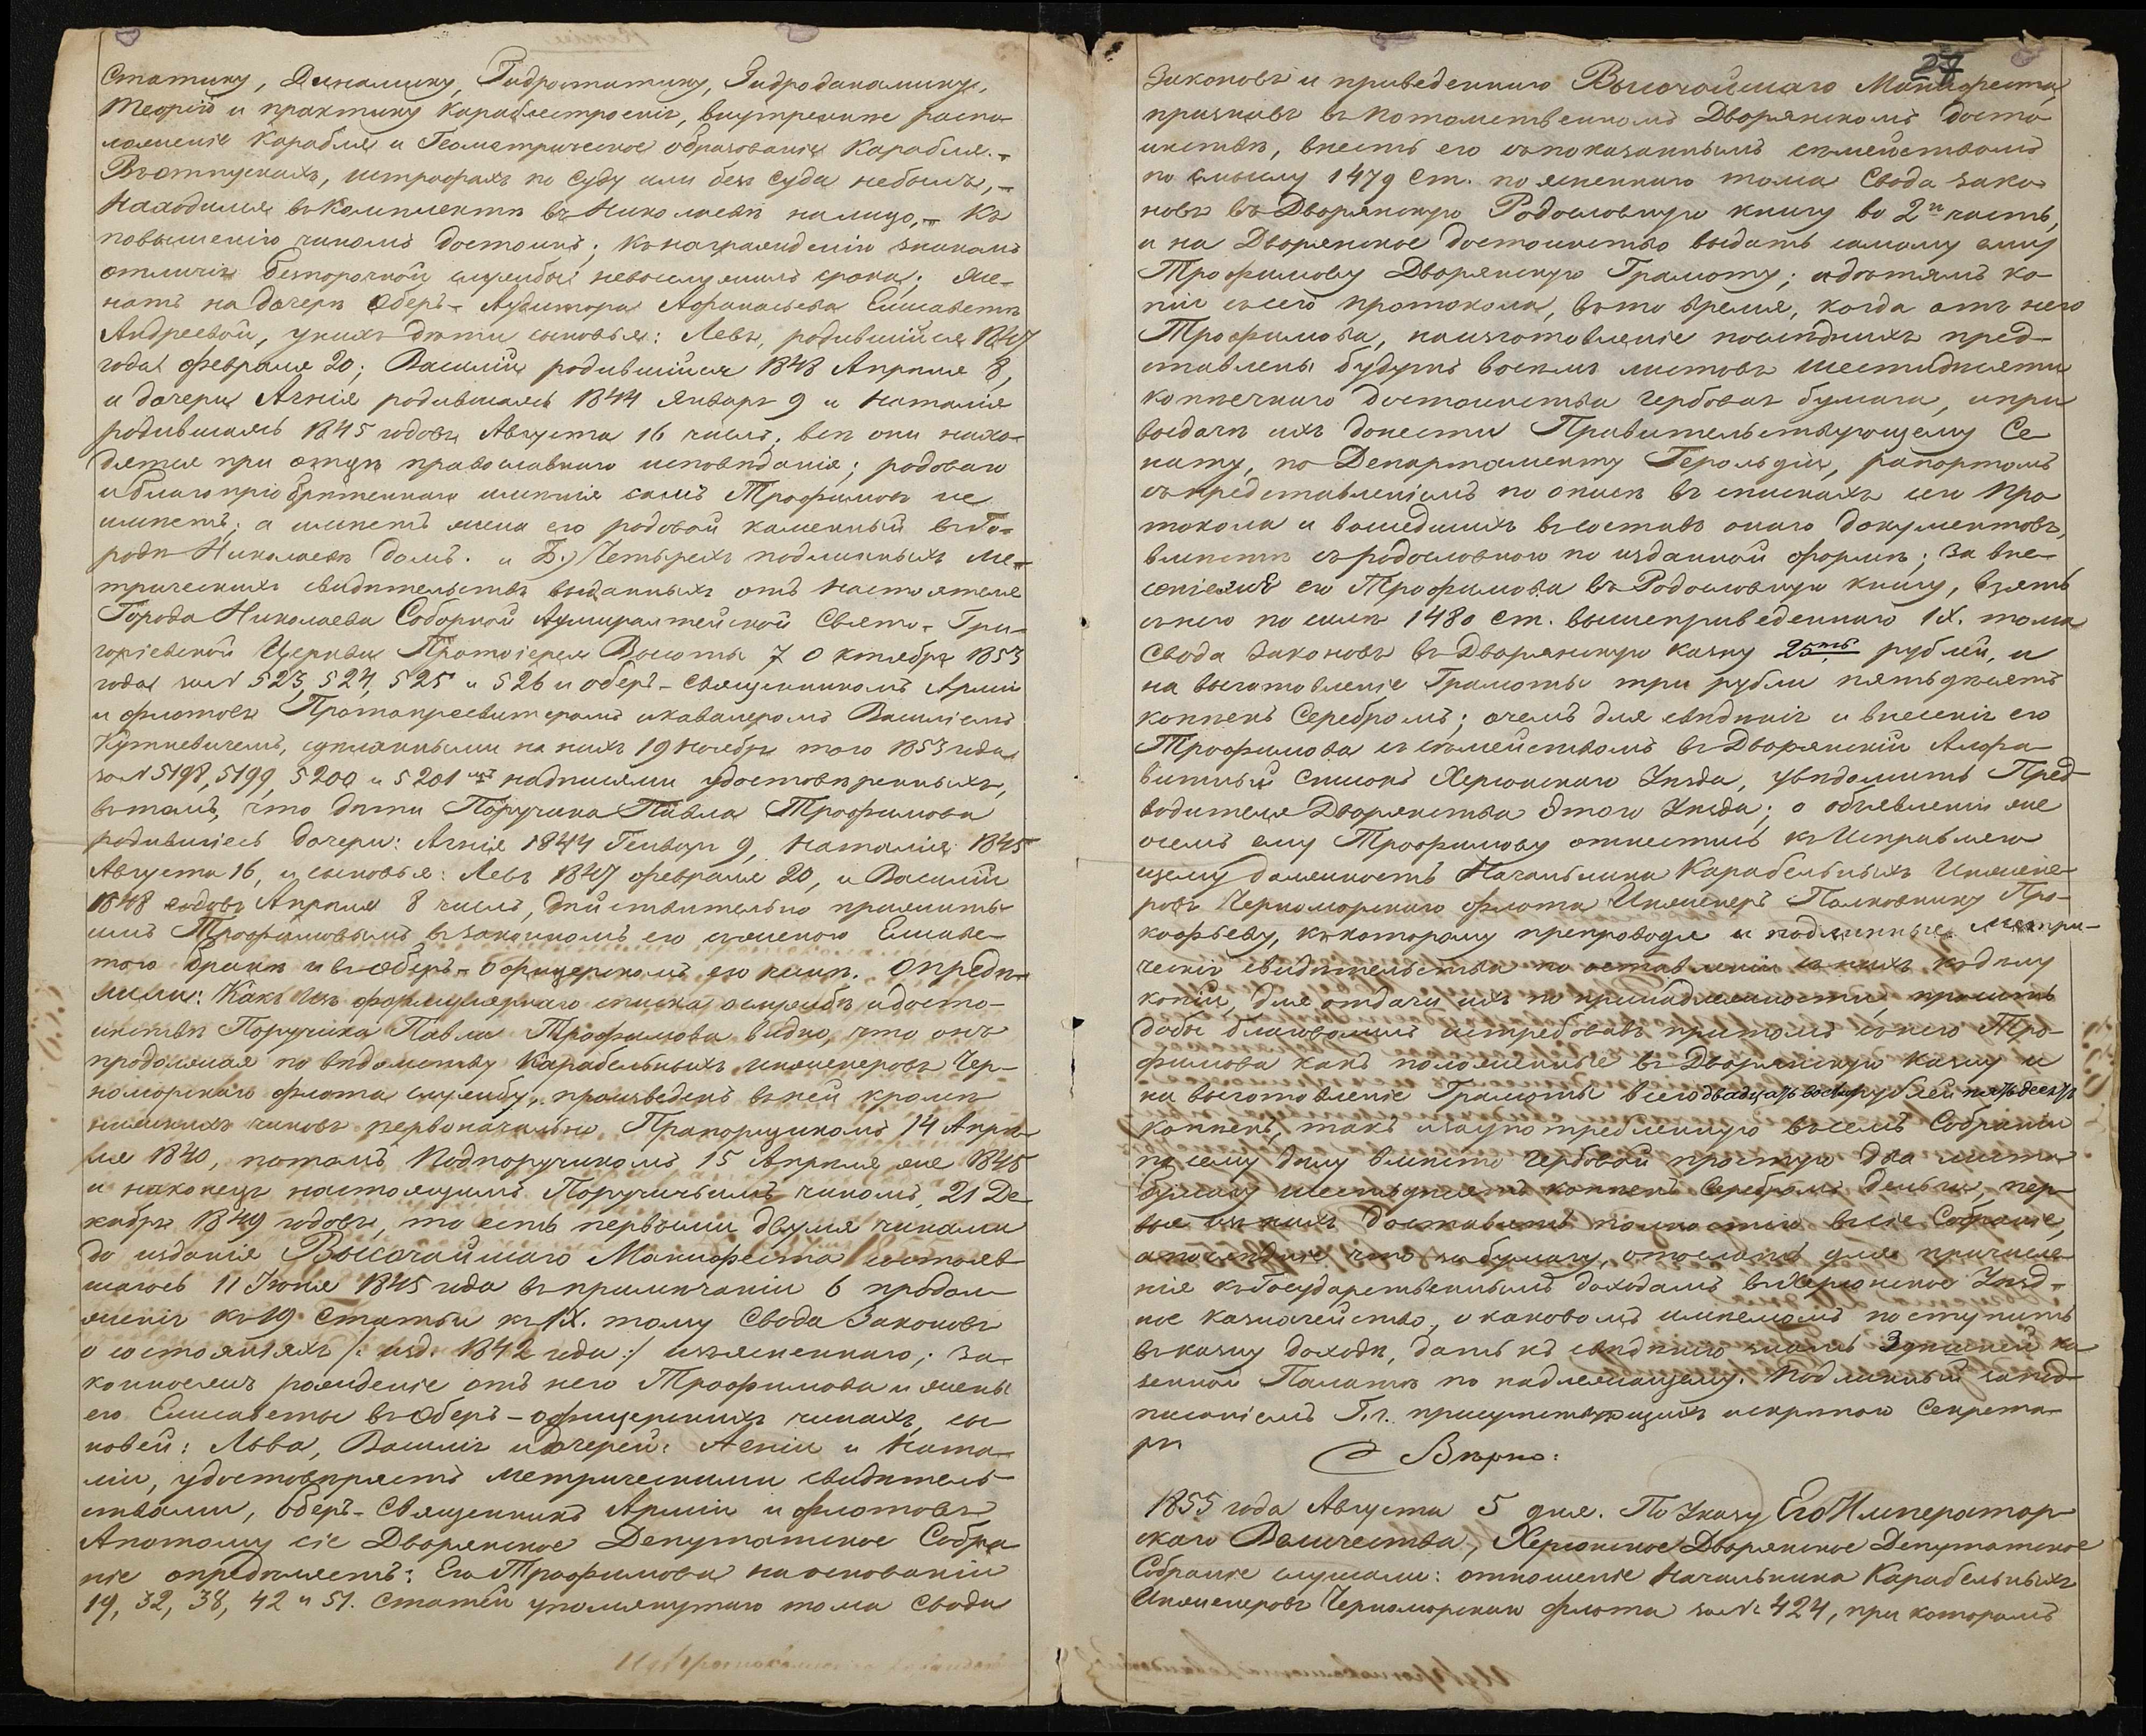 Статику, Динамику, Гидростатику, Гидродинамику,
Теорію и практику Кораблестроенія, внутреннее распо-
ложеніе Корабля и Геометрическое образованіе Корабля. -
Въ отпускахъ, штрафахъ по суду или безъ суда небылъ, -
Находился въ Комплектѣ въ Николаевѣ налицо, - Къ
повышенію чиномъ достоинъ; Къ награжденію знакомъ
отличія безпорочной службы невыслужилъ срока; Же-
натъ на дочери Оберъ-Аудитора Афанасьева Елисаветѣ
Андреевой, унихъ дѣти сыновья: Левъ, родившійся 1847
года февраля 20; Василій родившійся 1848 Апрѣля 8,
и дочери Агнія родившаясь 1844 Января 9 и Наталія
родившаясь 1845 годовъ Августа 16 чиселъ, всѣ они нахо-
дятся при отцѣ православнаго исповѣданія; родоваго
и благопріобрѣтеннаго имѣнія самъ Трофимовъ не
имѣетъ; а имѣетъ жена его родовой каменный въ го-
родѣ Николаевѣ домъ. и Б.) Четырехъ подлинныхъ ме-
трическихъ свидѣтельствъ выданныхъ отъ настоятеля
Города Николаева Соборной Адмиралтейской Свято-Гри-
горіевской Церкви Протоіерея Высоты 7 Октября 1853
года за № 523, 524, 525 и 526 и оберъ-священникомъ Арміи
и флотовъ Протопресвитеромъ икавалеромъ Василіемъ
Кутневичемъ, сдѣланными на нихъ 19 Ноября того 1853 года
за № 5198, 5199, 5200 и 5201 мъ надписями удостовѣренныхъ,
вътомъ, что дѣти Поручика Павла Трофимова
родившіесь дочери: Агнія 1844 Генваря 9, Наталія 1845
Августа 16, и сыновья: Левъ 1847 февраля 20, и Василій
1848 годовъ Апрѣля 8 чиселъ, дѣйствительно прижиты
имъ Трофимовымъ взаконномъ его съженою Елисаве-
тою бракѣ и въ оберъ-офицерскомъ его чинѣ. Опредѣ-
лили: Какъ изъ формулярнаго списка ослужбѣ идосто-
инствѣ Поручика Павла Трофимова видно, что онъ
продолжая по вѣдомству Корабельныхъ инженеровъ Чер-
номорскаго флота службу, произведенъ въней кромѣ
нижнихъ чиновъ первоначально Прапорщикомъ 14 Апрѣ-
ля 1840, потомъ Подпоручикомъ 15 Апрѣля же 1845
и наконецъ настоящимъ Поручичьимъ чиномъ 21 Де-
кабря 1849 годовъ, то есть первыми двумя чинами
до изданія Высочайшаго Манифеста состояв-
шагось 11 Іюня 1845 года въ примѣчаніи 6 продол-
женія къ 19 Статьи къ IX. тому Свода Законовъ
о состояніяхъ /: изд. 1842 года :/ изъясненнаго; За-
конноежъ рожденіе отъ него Трофимова и жены
его Елисаветы въ Оберъ-офицерскихъ чинахъ, сы-
новей: Льва, Василія идочерей: Агніи и Ната-
ліи, удостовѣряетъ метрическими свидѣтель-
ствами, Оберъ-Священникъ Арміи и флотовъ
Апотому сіе Дворянское Депутатское Собра-
ніе опредѣляетъ: Его Трофимова наоснованіи
19, 32, 38, 42 и 51. Статей упомянутаго тома Свода
27
Законовъ и приведеннаго Высочайшаго Манифеста,
признавъ въ потомственномъ Дворянскомъ досто-
инствѣ, внесть его съ показаннымъ съмействомъ
по смыслу 1479 Ст. поясненнаго тома Свода зако-
новъ въ Дворянскую Родословную книгу во 2ю часть,
и на Дворянское достоинство выдать самому ему
Трофимову Дворянскую Грамоту; адѣтямъ ко-
піи съсего протокола, въто время, когда отъ него
Трофимова, наизготовленіе послѣднихъ пред-
ставлены будутъ восемь листовъ шестидесяти
копѣечнаго достоинства гербовой бумаги, ипри
выдачѣ ихъ донести Правительствующему Се-
нату, по Департаменту Герольдіи, рапортомъ
съпредставленіемъ по описи въ спискахъ сего Про-
токола и вошедшихъ въсоставъ онаго документовъ,
вмѣстѣ съродословною по изданной формѣ; За вне-
сеніемъ его Трофимова въ Родословную книгу, взять
снего по силѣ 1480 ст. вышеприведеннаго IX. тома
Свода Законовъ въ Дворянскую казну 25ть рублей, и
на выготовленіе Грамоты три рубли пятьдесятъ
копѣекъ Серебромъ; очемъ для свѣдѣнія и внесенія его
Трофимова съ съмействомъ въ Дворянскій Алфа-
витный списокъ Херсонскаго Уѣзда, увѣдомить Пред-
водителя Дворянства этого Уѣзда; о объявленіи же
осемъ ему Трофимову отнестись къ Исправляю-
щему должность Начальника Карабельныхъ Инжене-
ровъ Черноморскаго флота Инженеръ Полковнику Про-
кофьеву, къкоторому препроводя и подлинные метри-
ческія свидѣтельства по оставленіи съ нихъ къдѣлу
копій, для отдачи ихъ по принадлежности, просить
дабы благоволилъ истребовать притомъ снего Тро-
фимова какъ положенные въ Дворянскую казну и
на выготовленіе Грамоты всего двадцать восемь рублей пятьдесятъ
копѣекъ, такъ изаупотребленную въсемъ Собраніи
посему дѣлу вмѣсто гербовой простую два листа
бумагу шестьдесятъ копѣекъ Серебромъ деньги, пер-
вые изъ нихъ доставить полностію въсіе Собраніе,
апослѣднія, что забумагу, отослать для причисле-
нія къ Государственнымъ доходамъ въ Херсонское Уѣзд-
ное казначейство, о каковомъ имѣемомъ поступить
въ казну доходѣ, дать къ свѣдѣнію знать Здѣшней ка-
зенной Палатѣ по надлежащему. Подлинный запод-
писаніемъ Г.г. присутствующихъ искрѣпою Секрета-
ря
Вѣрно:
1855 года Августа 5 дня. По Указу Его Император-
скаго Величества, Херсонское Дворянское Депутатское
Собраніе слушали: отношеніе Начальника Карабельныхъ
Инженеровъ Черноморскаго флота за № 424, при которомъ